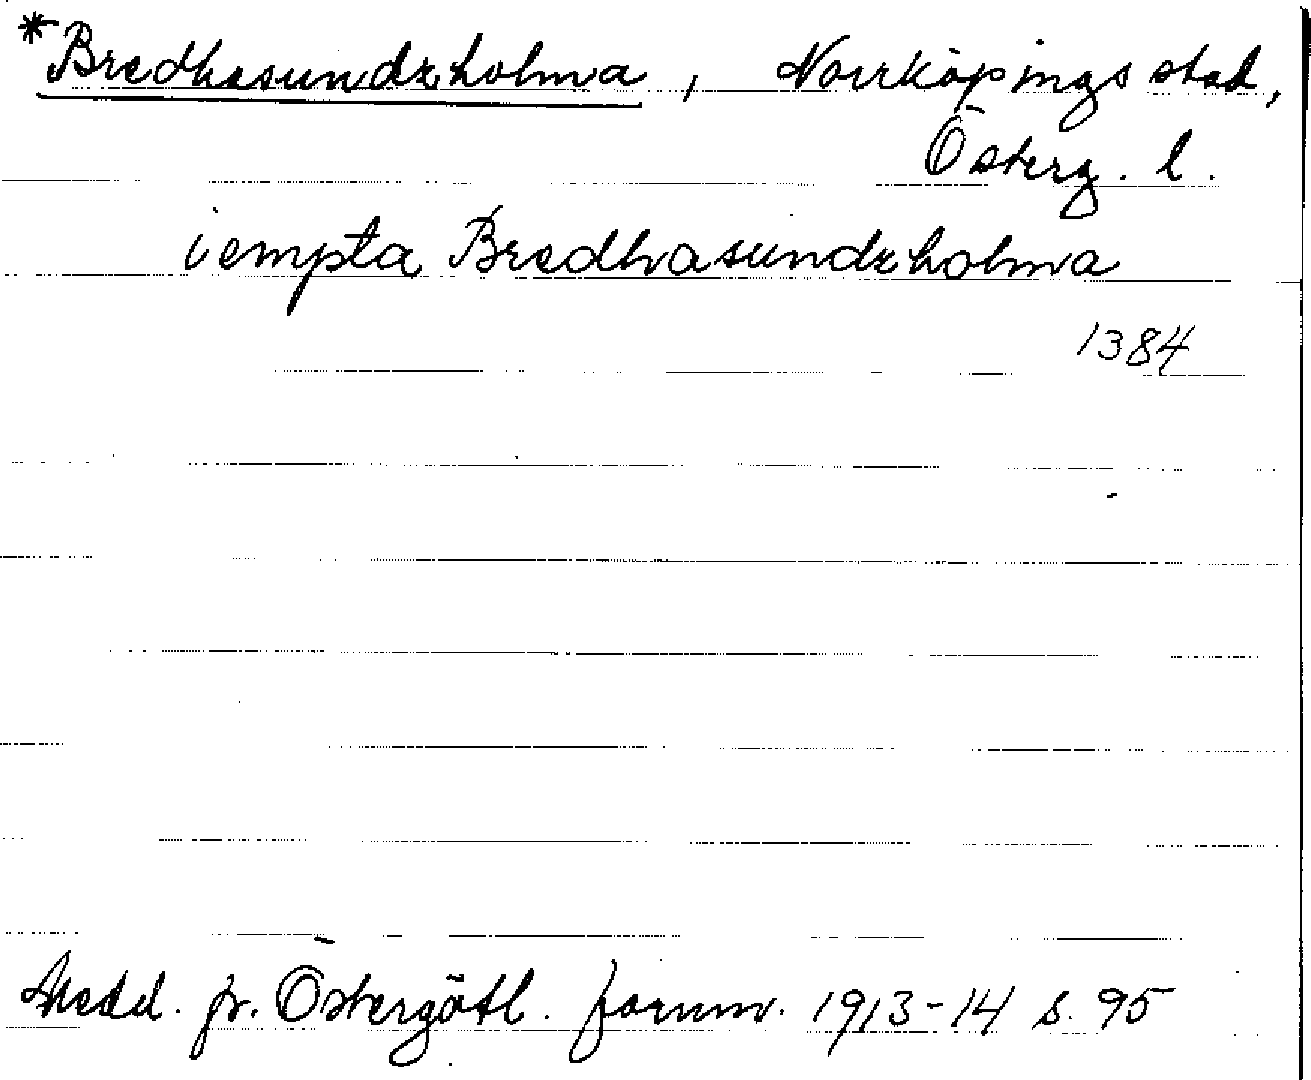 *Bredhasundzholma, Norrköpings stad,
Österg. l.
iempta Bredhasundzholma
1384
Medd. fr. Östergötl. fornm. 1913-14 s. 95